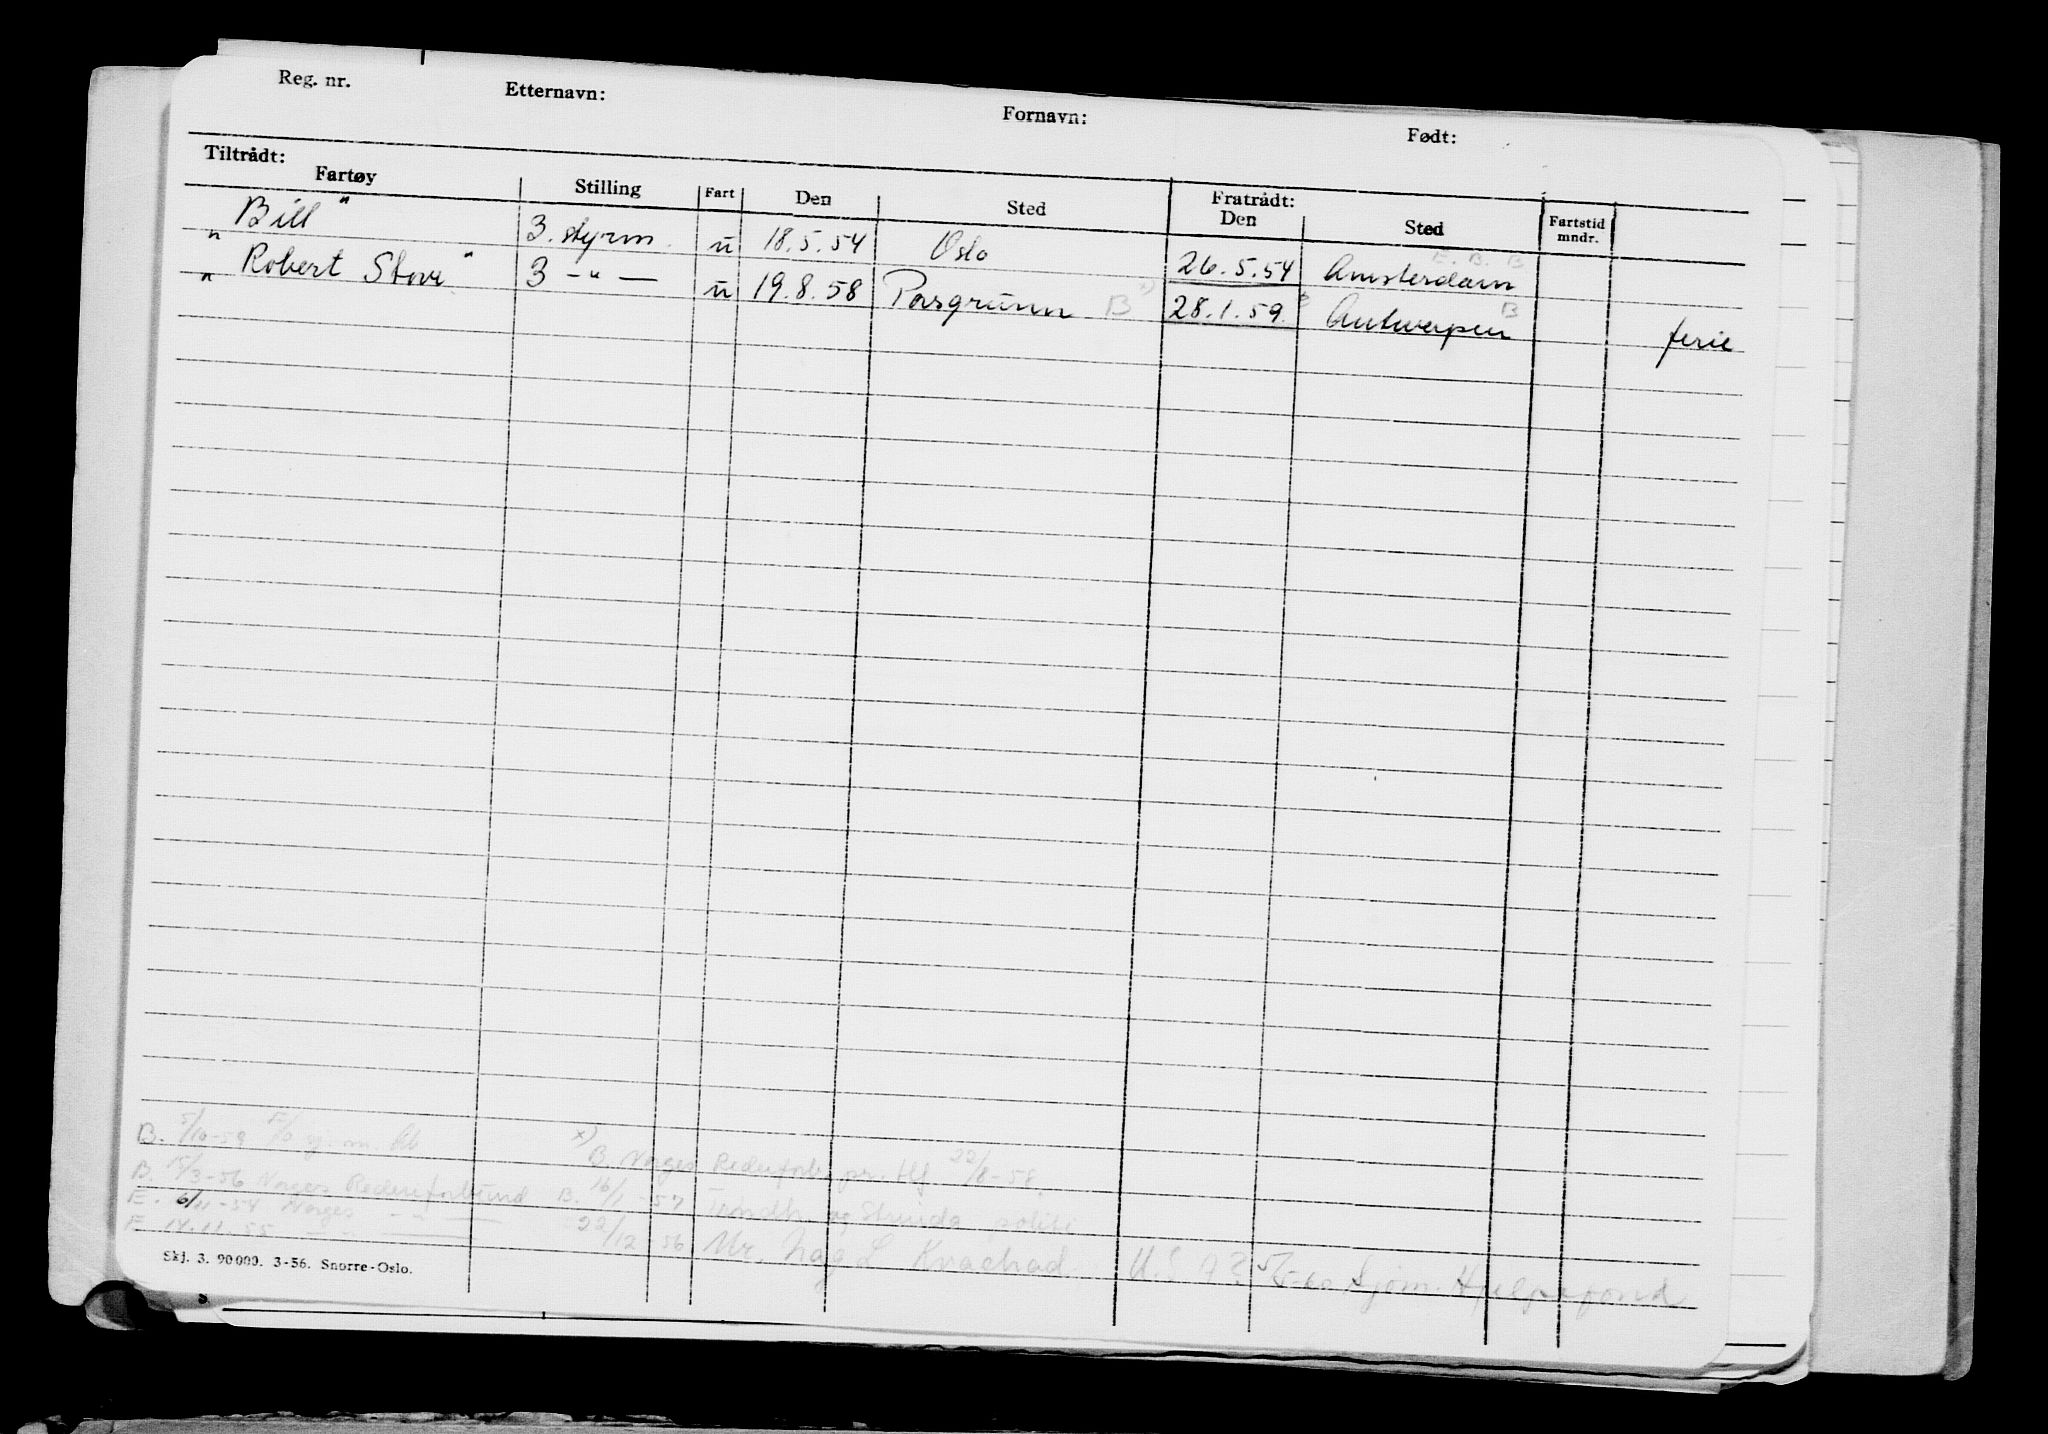 Reg. nr. Etternavn: Fornavn: Født:
Tiltrådt: Fratrådt:
Fartøy Stilling Fart Den Sted Den Sted Fartstid mndr.
"Bill" 3. styrm. u 18.5.54 Oslo 26.5.54 Amsterdam E. B. B
"Robert Stove" 3 - " - u 19.8.58 Porsgrunn B x) 28.1.59 Antwerpen B ferie
B. 5/10-59
x) B. Norges Rederforb. pr. tlf 22/8-58.
B. 15/3-56 Norges Rederiforbund B. 16/ -57 og Strinda politi
E. 6/11-54 Norges - " -
22/12 56 Mr. U.S.A. Sjøm. Hjelpefond
E 14.11.55 - " -
Skj. 3. 90000. 3-56. Snorre-Oslo.